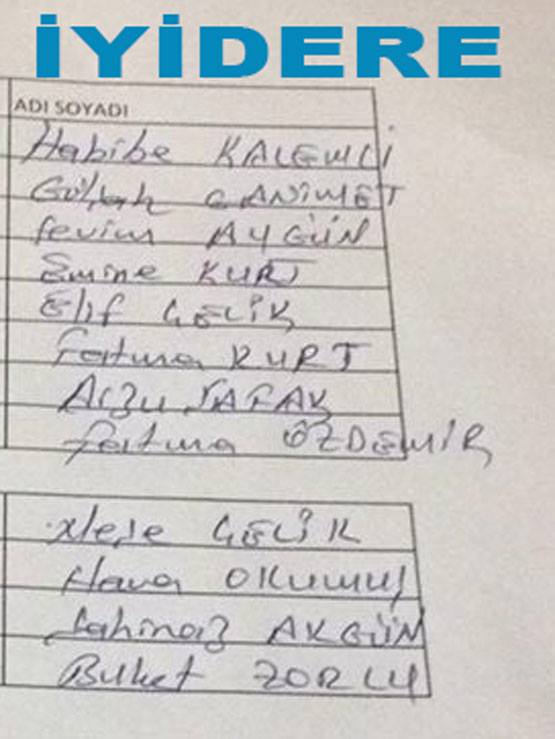 İYİDERE
ADI SOYADI
Habibe KALEMCİ
GANİMET
Sevim AYGÜN
Emine KURT
Elif ÇELİK
Fatma KURT
Arzu ŞAFAK
Fatma ÖZDEMİR
ÇELİK
Hava OKUMUŞ
Şahinaz AKGÜN
Buket ZORLU